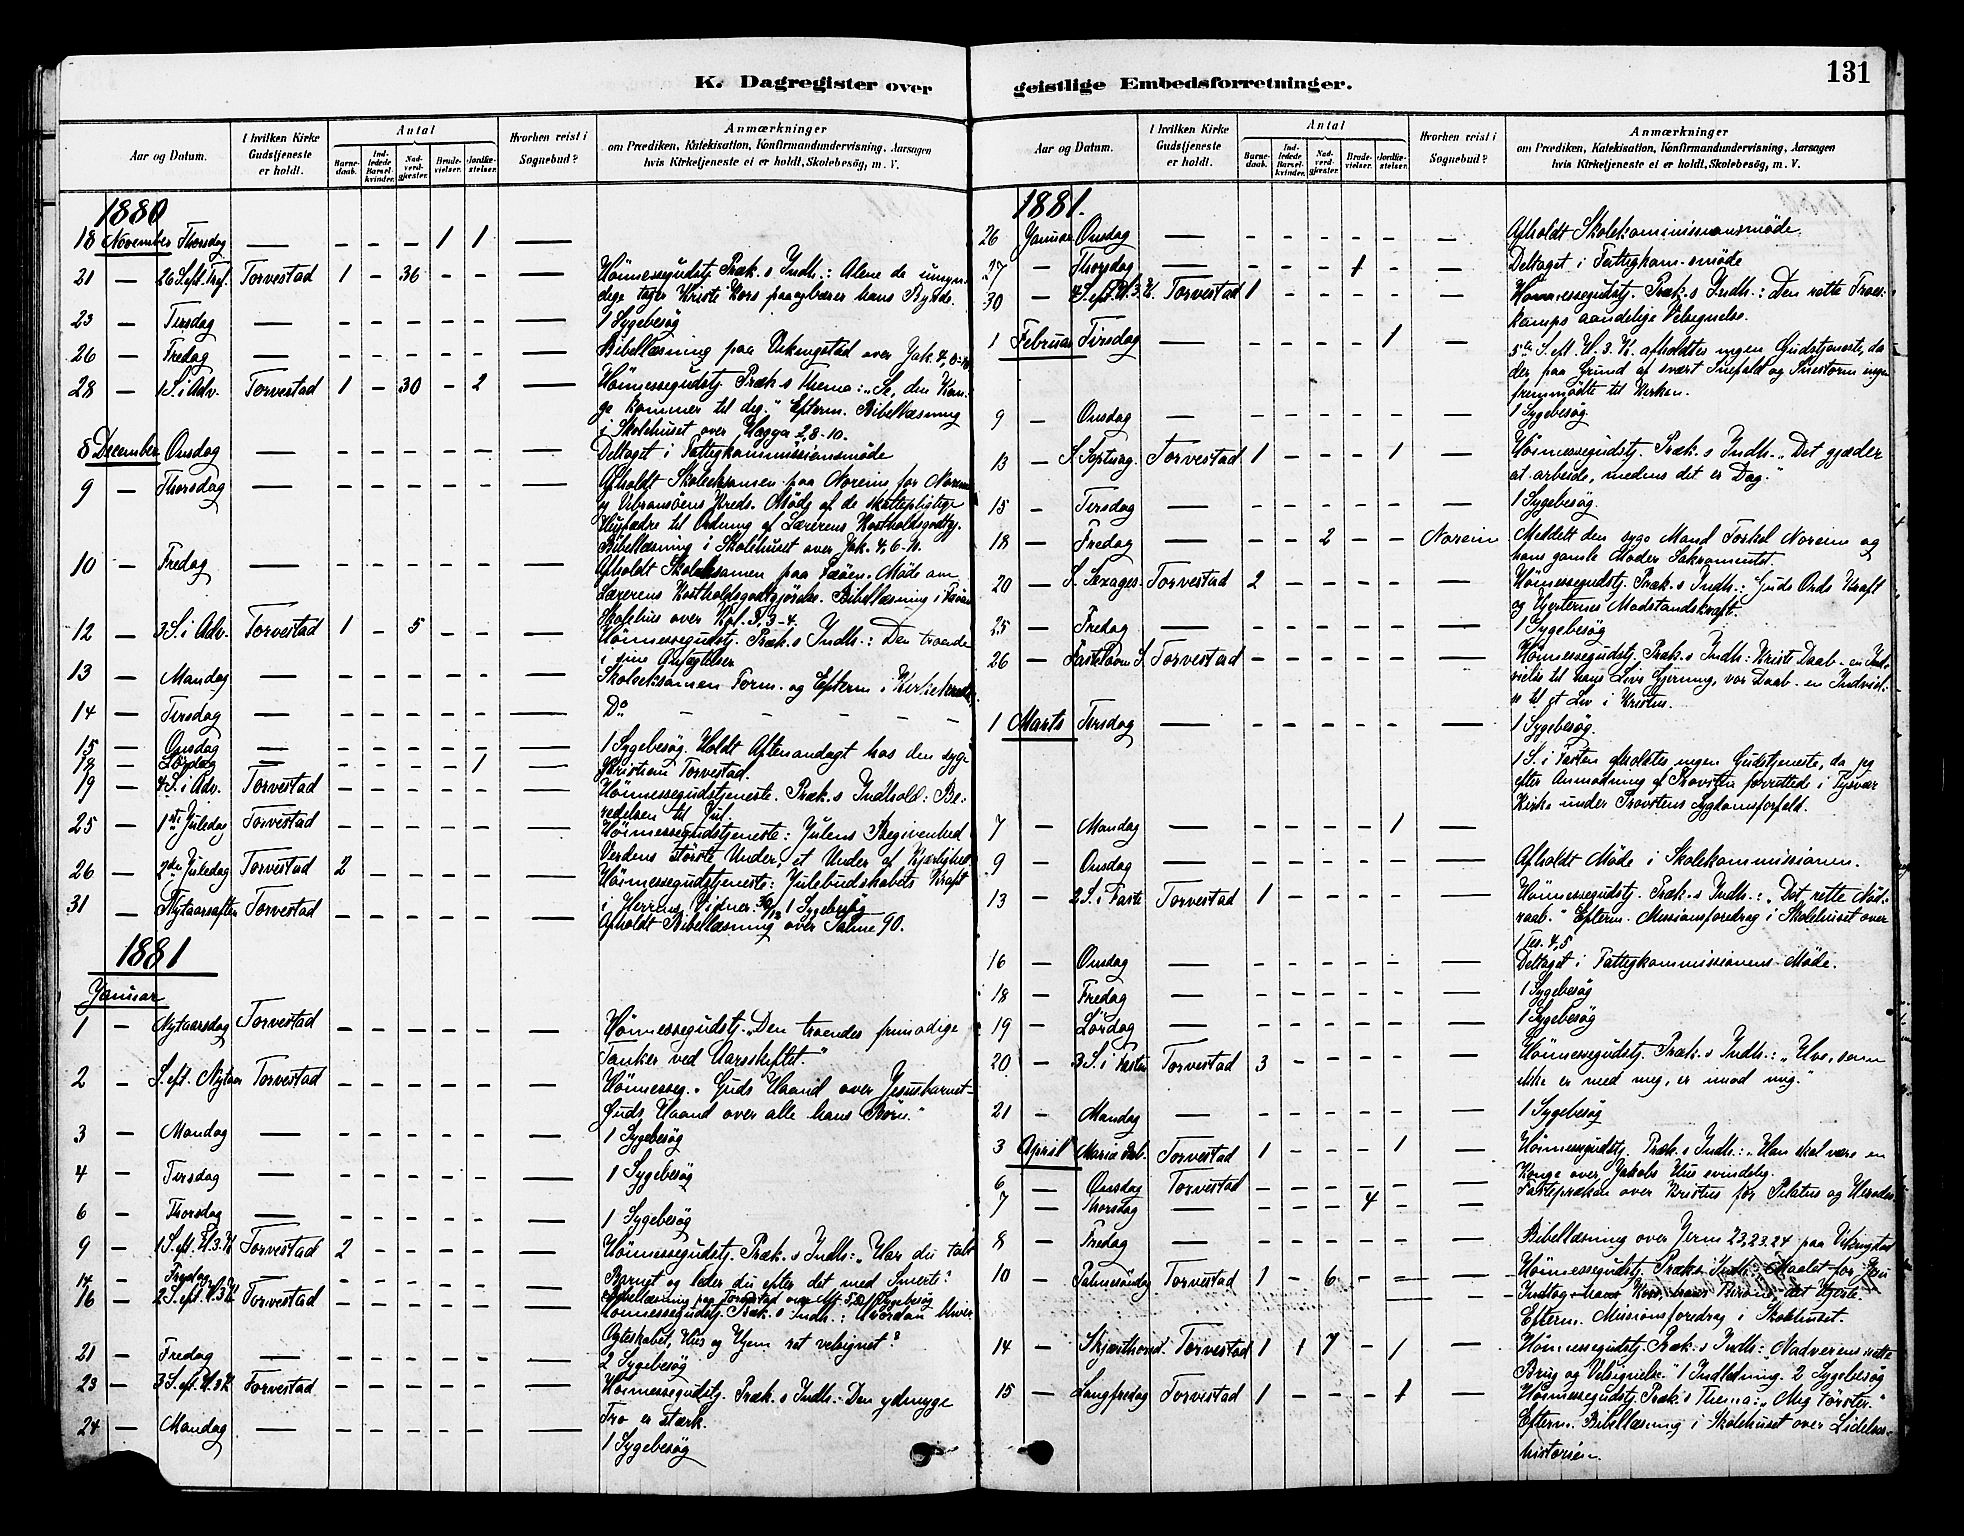 K. Dagregister over
Aar og Datum.
I hvilken Kirke Gudstjeneste er holdt.
Antal
Barnedaab.
Indledede Barselkvinder.
Nadverdgjester.
Brudevielser.
Jordkastelser.
Hvorhen reist i Sognebud?
Anmærkninger
om Prædiken, Katekisation, Konfirmandundervisning, Aarsagen
hvis Kirketjeneste ei er holdt, Skolebesög, m. V.
1880
18 November Thorsdag — - - - 1 1 —
21 — 26 S. eft. Tref. Torvestad 1 - 36 - - — Höimessegudstj. Præk.s Indh.: Alene de umyn-
dige tager Kristi Kors paa og bærer hans Byrde.
23 — Tirsdag — - - - - - — 1 Sygebesøg
26 — Fredag — - - - - - — Bibellæsning paa Vikingstad over Jak. 4,
28 — 1 S. i Adv. Torvestad 1 - 30 - 2 — Höimessegudstj. Præk.s Thema: "Se, den Kon-
ge kommer til dig." Efterm. Bibellæsning
i Skolehuset over Hagga 2,8-10.
8 December Onsdag — - - - - - — Deltaget i Fattigkommissionsmöde
9 — Thorsdag — - - - - - — Afholdt Skoleeksamen paa Noreim for Noreim
og Vibransöens Kreds. Möde af de skattepligtige
Husfædre til Ordning af Lærerens Kostholdsgodtgj.
Bibellæsning i Skolehuset over Jak. 4,6-10.
10 — Fredag — - - - - - — Afholdt Skoleeksamen paa Fæöen. Möde om
Lærerens Kostholdsgodtgjörelse. Bibellæsning i Fæöens
Skolehus over Kol. 3,3-4.
12 — 3 S. i Adv. Torvestad 1 - 5 - - — Höimessegudstj. Præk.s Indh.: Den troende
i sine Anfægtelser
13 — Mandag — - - - - - — Skoleeksamen Form. og Efterm. i Kirkekredsen
14 — Tirsdag — - - - - - — Do — — — — —
15 — Onsdag — - - - - - — 1 Sygebesög. Holdt Aftenandagt hos den syge
18 — Lørdag — - - - - 1 — Kristian Torvestad.
19 — 4 S. i Adv. Torvestad - - - - - — Höimessegudstjeneste. Præk.s Indhold: Be-
redelsen til Jul
25 — 1ste Juledag Torvestad - - - - - — Höimessegudstjeneste: Julens Begivenhed
Verdens störste Under, et Under af Kjærlighed.
26 — 2den Juledag Torvestad 2 - - - - — Höimessegudstjeneste: Julebudskabets Kraft
i Herrens Vidner. 30/12 1 Sygebesög
31 — Nytaarsaften Torvestad - - - - - — Afholdt Bibellæsning over Salme 90.
1881
Januar
1 — Nytaarsdag Torvestad - - - - - — Höimessegudstj. "Den troendes frimodige
Tanker ved Aarsskiftet."
2 — S. eft. Nytaar Torvestad - - - - - — Höimesseg. "Guds Haand over Jesusbarnet -
Guds Haand over alle hans Börn."
3 — Mandag — - - - - - — 1 Sygebesøg
4 — Tirsdag — - - - - - — 1 Sygebesøg
6 — Thorsdag — - - - - - — 1 Sygebesøg
9 — 1 S. eft. H.3.K. Torvestad 2 - - - - — Höimessegudstj. Præk.s Indh.: "Har du tabt
Barnet og leder du efter det med Smerte?
14 — Fredag — - - - - - — Bibellæsning paa Torvestad over 1 Sygebesøg
16 — 2 S. eft. H.3.K Torvestad - - - - - — Höimessegudstj. Præk.s Indh.: Hvordan bliver
Ægteskabet, Hus og Hjem ret velsignet?
21 — Fredag — - - - - - — 2 Sygebesøg
23 — 3 S. eft. H.3.K Torvestad - - - - - — Höimessegudstj. Præk.s Indh.: Den ydmyge
Tro er stærk.
24 — Mandag — - - - - - — 1 Sygebesøg
geistlige Embedsforretninger.
131
Aar og Datum.
I hvilken Kirke Gudstjeneste er holdt.
Antal
Barnedaab.
Indledede Barselkvinder.
Nadverdgjester.
Brudevielser.
Jordkastelser.
Hvorhen reist i Sognebud?
Anmærkninger
om Prædiken, Katekisation, Konfirmandundervisning, Aarsagen
hvis Kirketjeneste ei er holdt, Skolebesög, m. V.
1881.
26 Januar Onsdag — - - - - - — Afholdt Skolekommissionsmöde.
27 — Thorsdag — - - - 1 - — Deltaget i Fattigkom.smöde
30 — 4 S. eft. H.3.K. Torvestad 1 - - - - — Höimessegudstj. Præk.s Indh.: Den rette Troes-
kamps aandelige Velsignelse.
1 Februar Tirsdag — - - - - 1 — 5te S. eft. H.3.K. afholdtes ingen Gudstjeneste, da
der paa Grund af svært Snefald og Snestorm ingen
fremmödte til Kirken.
9 — Onsdag — - - - - - — 1 Sygebesög.
13 — S. Septuag. Torvestad 1 - - - 1 — Höimessegudstj. Præk.s Indh. "Det gjælder
at arbeide, medens det er Dag."
15 — Tirsdag — - - - - - — 1 Sygebesøg.
18 — Fredag — - - 2 - - Noreim Meddelt den syge Mand Torkel Noreim og
hans gamle Moder Sakramentet.
20 — S. Sexages. Torvestad 2 - - - - — Höimessegudstj. Præk.s Indh.: Guds Ords Kraft
og Hjerternes Modstandskraft.
25 — Fredag — - - - - - — 1 Sygebesøg
26 — Fastelavns S. Torvestad - - - - - — Höimessegudstj. Præk.s Indh: Kristi Daab - en Ind-
vielse til hans Livs Gjerning, vor Daab - en Indviel-
se til et Liv i Kristus.
1 Marts Tirsdag — - - - - - — 1 Sygebesøg.
1 S. i Fasten afholdtes ingen Gudstjeneste, da jeg
efter Anmodning af Provsten forrettede i Tysvær
Kirke under Provstens Sygdomsforfald.
7 — Mandag — - - - - 1 —
9 — Onsdag — - - - - - — Afholdt Möde i Skolekommissionen.
13 — 2 S. i Faste Torvestad 1 - - - - — Höimessegudstj. Præk.s Indh.: "Det rette Nöd-
raab." Efterm. Missionsforedrag i Skolehuset over
4,5
16 — Onsdag — - - - - - — Deltaget i Fattigkommissionens Möde.
18 — Fredag — - - - - - — 1 Sygebesøg
19 — Lördag — - - - - - — 1 Sygebesøg
20 — 3 S. i Fasten Torvestad 3 - - - - — Höimessegudstj. Præk.s Indh.: "Hvo, som
ikke er med mig, er imod mig."
21 — Mandag — - - - - - — 1 Sygebesög
3 April Maria Beb. Torvestad 1 - - - 1 — Höimessegudstj. Præk.s Indh.: "Han skal være en
Konge over Jakobs Hus evindelig.
6 — Onsdag Torvestad - - - - - — Fastepræken over Kristus for Pilatus og Herodes
7 — Thorsdag — - - - 4 - —
8 — Fredag — - - - - - — Bibellæsning over Jerm 23,23.24 paa Vikingstad
10 — Palmesöndag Torvestad 1 - 6 - - — Höimessegudstj. Præk.s Indh. Maalet for Jesu
Indtog - hans Kors, hans det Hjerte.
Efterm. Missionsforedrag i Skolehuset.
14 — Skjærthorsd. Torvestad 1 1 7 - 1 — Höimessegudstj. Præk.s Indh.: "Nadverens rette
Brug og Velsignelse." 1 Indledning. 2 Sygebesög
15 — Langfredag Torvestad 1 - - - 1 — Höimessegudstj. Præk.s Thema: "Mig törster."
Efterm. Bibellæsning i Skolehuset over Lidelses-
historien.